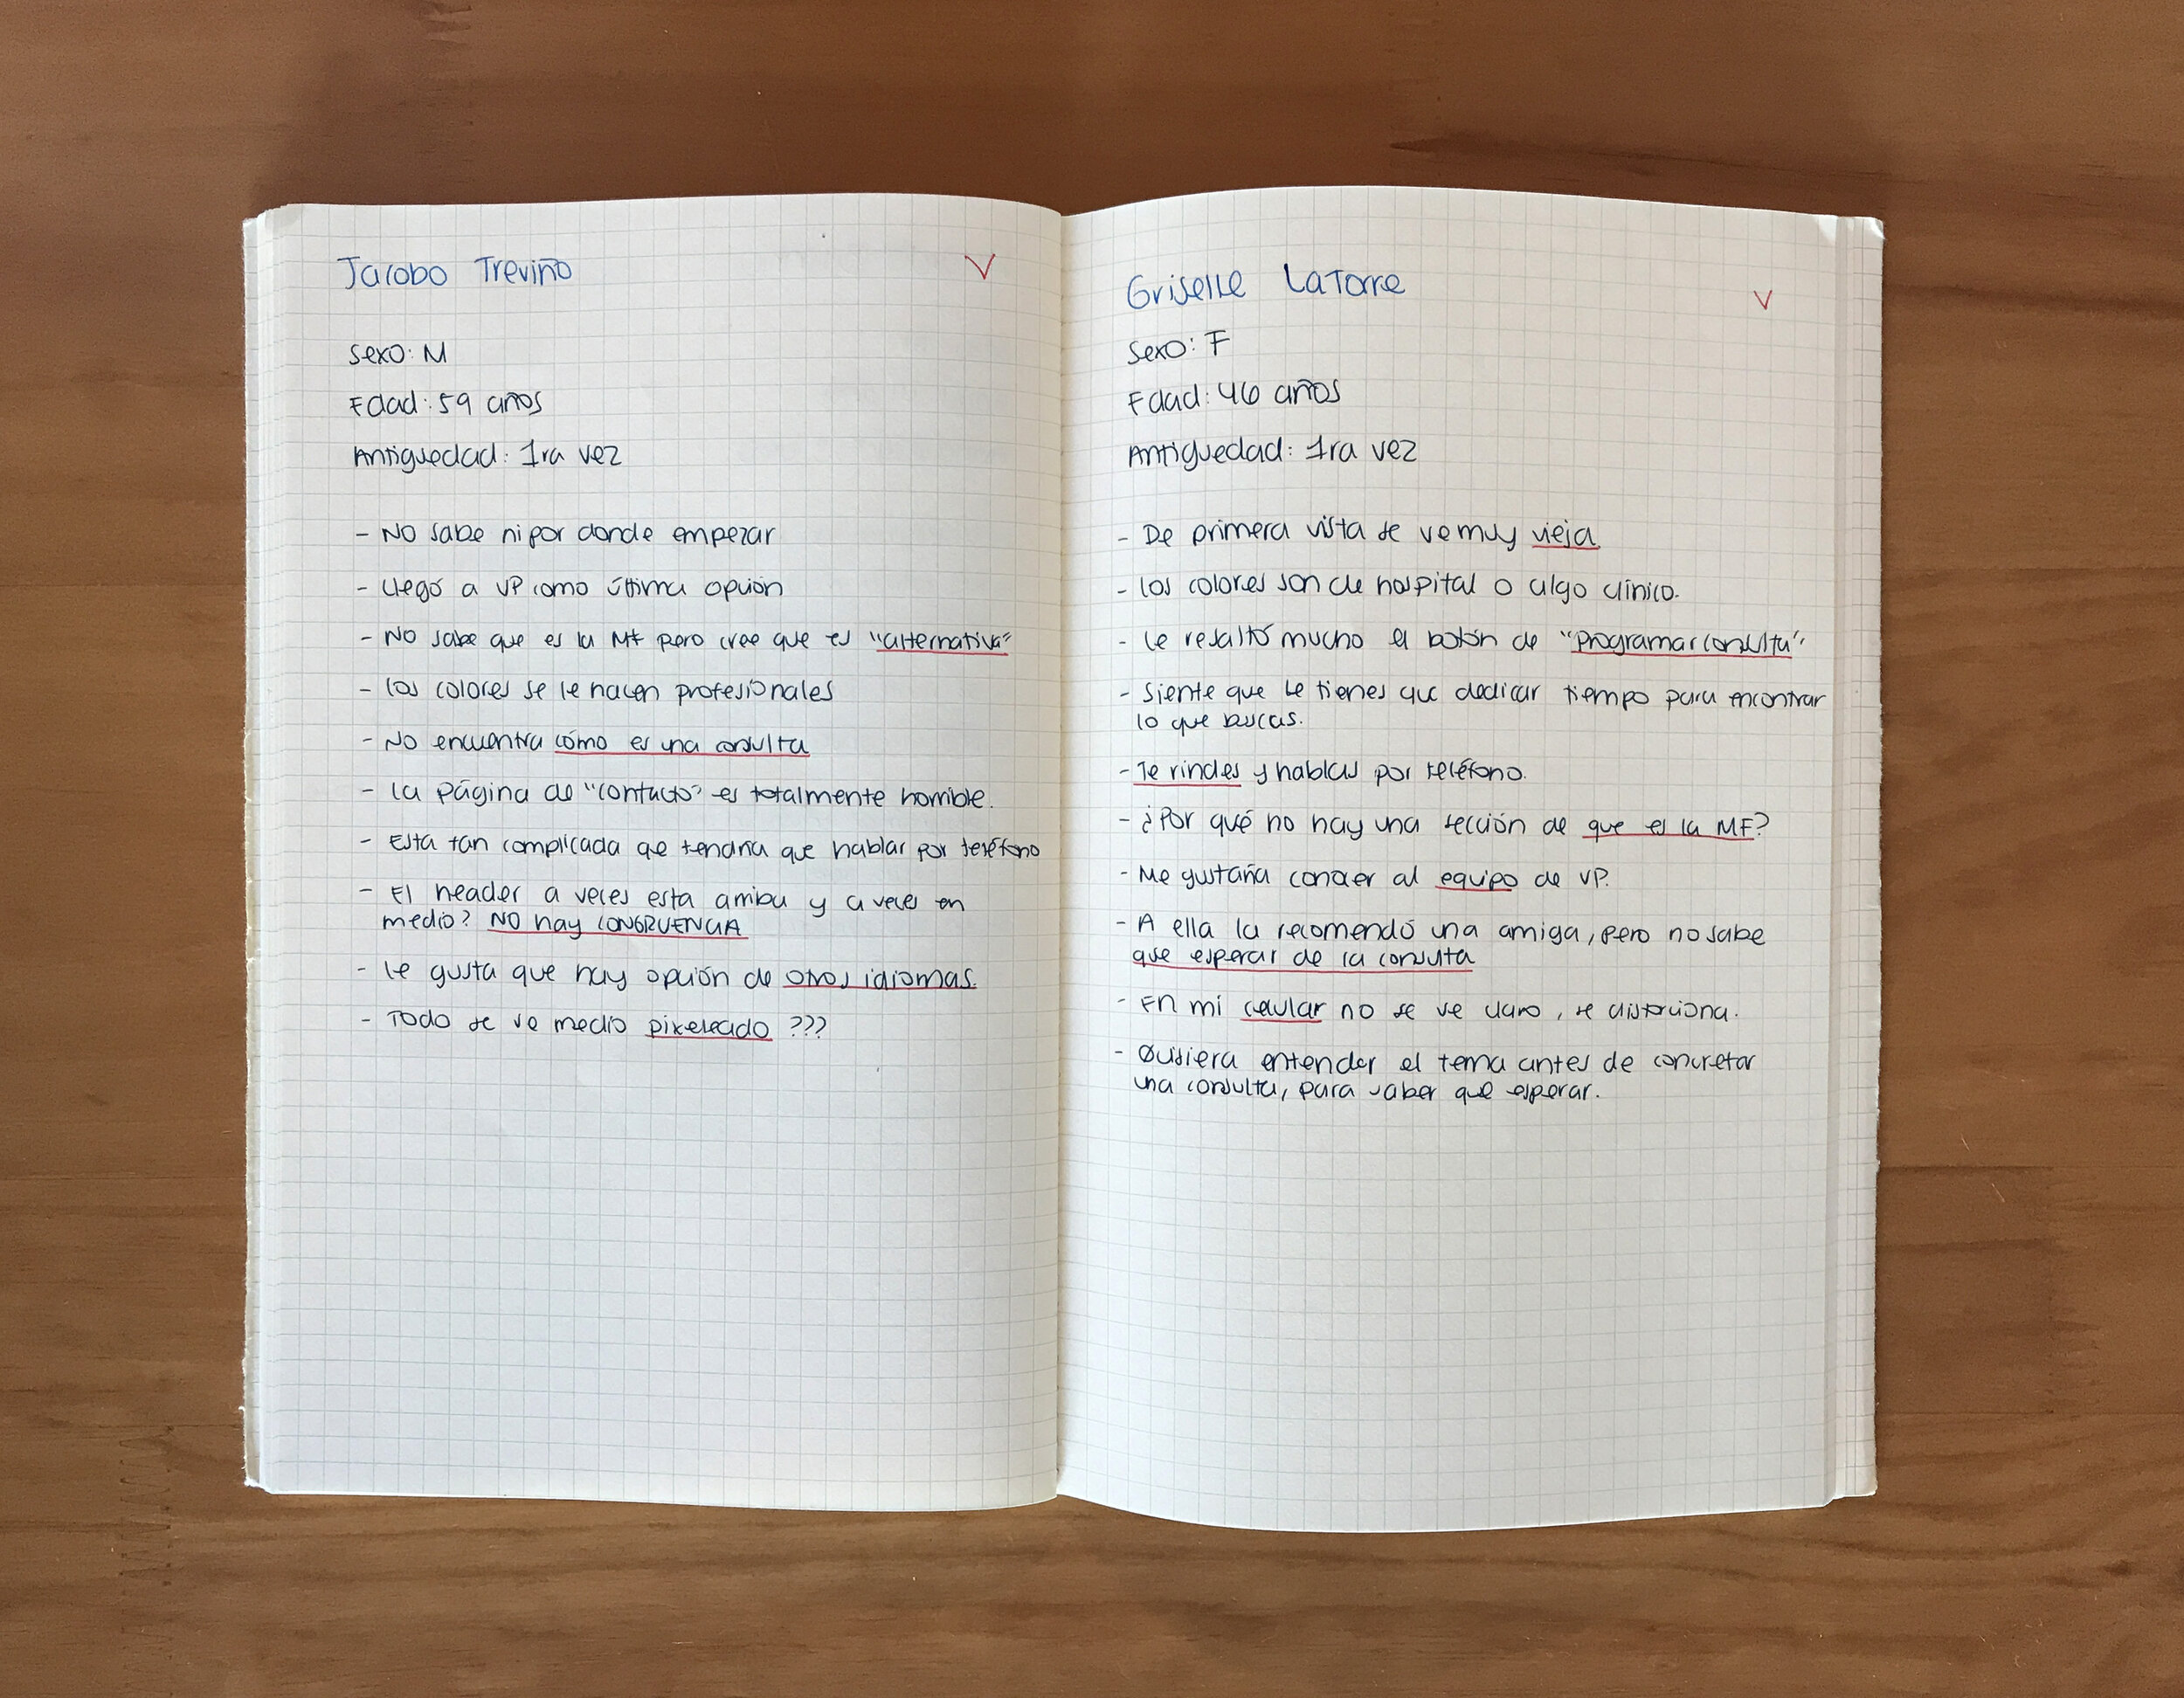 Jacobo Treviño
V
Sexo: M
Edad: 59 años
Antiguedad: 1ra vez
- No sabe ni por donde empezar
- Llegó a VP como última opción
- No sabe que es la MF pero cree que es "alternativa"
- Los colores se le hacen profesionales
- No encuentra cómo es una consulta
- La página de "contacto" es totalmente horrible.
- Esta tan complicada qe tendría que hablar por teléfono
- El header a veces esta arriba y a veces en
medio? NO hay CONGRUENCIA
- Le gusta que hay opción de otros idiomas.
- Todo se ve medio pixeleado ???
Griselle LaTorre
V
Sexo: F
Edad: 46 años
Antiguedad: 1ra vez
- De primera vista se ve muy vieja
- Los colores son de hospital o algo clínico.
- Le resaltó mucho el botón de "programar consulta"
- Siente que le tienes que dedicar tiempo para encontrar
lo que buscas.
- Te rindes y hablas por teléfono.
- ¿Por qué no hay una sección de que es la MF?
- Me gustaría conocer al equipo de VP.
- A ella la recomendó una amiga, pero no sabe
que esperar de la consulta
- En mi celular no se ve claro, se distorsiona.
- Quisiera entender el tema antes de concretar
una consulta, para saber que esperar.